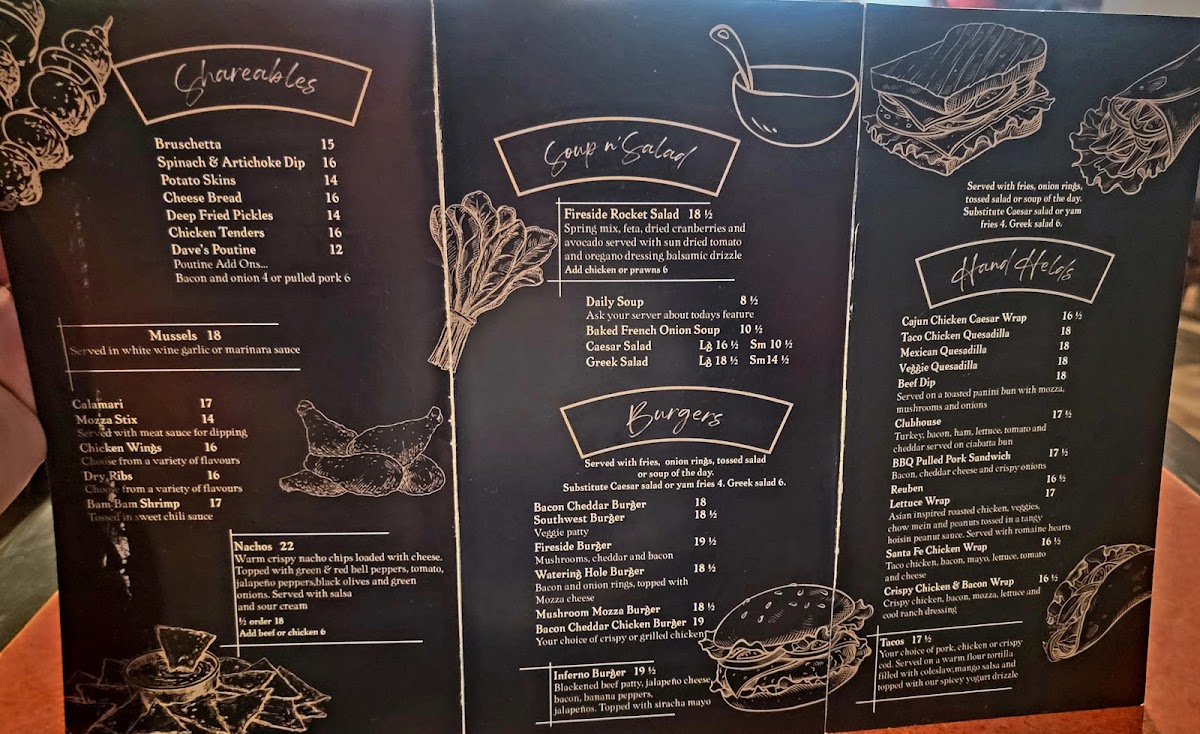 Shareables
Bruschetta 15
Spinach & Artichoke Dip 16
Potato Skins 14
Cheese Bread 16
Deep Fried Pickles 14
Chicken Tenders 16
Dave's Poutine 12
Poutine Add Ons...
Bacon and onion 4 or pulled pork 6
Mussels 18
Served in white wine garlic or marinara sauce
Calamari 17
Mozza Stix 14
Served with meat sauce for dipping
Chicken Wings 16
Choose from a variety of flavours
Dry Ribs 16
Choose from a variety of flavours
Bam Bam Shrimp 17
Tossed in sweet chili sauce
Nachos 22
Warm crispy nacho chips loaded with cheese.
Topped with green & red bell peppers, tomato,
jalapeño peppers,black olives and green
onions. Served with salsa
and sour cream
½ order 18
Add beef or chicken 6
Soup n' Salad
Fireside Rocket Salad 18 ½
Spring mix, feta, dried cranberries and
avocado served with sun dried tomato
and oregano dressing balsamic drizzle
Add chicken or prawns 6
Daily Soup 8 ½
Ask your server about todays feature
Baked French Onion Soup 10 ½
Caesar Salad Lg 16 ½ Sm 10 ½
Greek Salad Lg 18 ½ Sm 14 ½
Burgers
Served with fries, onion rings, tossed salad
or soup of the day.
Substitute Caesar salad or yam fries 4. Greek salad 6.
Bacon Cheddar Burger 18
Southwest Burger 18 ½
Veggie patty
Fireside Burger 19 ½
Mushrooms, cheddar and bacon
Watering Hole Burger 18 ½
Bacon and onion rings, topped with
Mozza cheese
Mushroom Mozza Burger 18 ½
Bacon Cheddar Chicken Burger 19
Your choice of crispy or grilled chicken
Inferno Burger 19 ½
Blackened beef patty, jalapeño cheese,
bacon, banana peppers,
jalapeños. Topped with siracha mayo
Served with fries, onion rings,
tossed salad or soup of the day.
Substitute Caesar salad or yam
fries 4. Greek salad 6.
Hand Helds
Cajun Chicken Caesar Wrap 16 ½
Taco Chicken Quesadilla 18
Mexican Quesadilla 18
Veggie Quesadilla 18
Beef Dip 18
Served on a toasted panini bun with mozza,
mushrooms and onions
Clubhouse 17 ½
Turkey, bacon, ham, lettuce, tomato and
cheddar served on ciabatta bun
BBQ Pulled Pork Sandwich 17 ½
Bacon, cheddar cheese and crispy onions
Reuben 16 ½
Lettuce Wrap 17
Asian inspired roasted chicken, veggies,
chow mein and peanuts tossed in a tangy
hoisin peanut sauce. Served with romaine hearts
Santa Fe Chicken Wrap 16 ½
Taco chicken, bacon, mayo, lettuce, tomato
and cheese
Crispy Chicken & Bacon Wrap 16 ½
Crispy chicken, bacon, mozza, lettuce and
cool ranch dressing
Tacos 17 ½
Your choice of pork, chicken or crispy
cod. Served on a warm flour tortilla
filled with coleslaw,mango salsa and
topped with our spicy yogurt drizzle